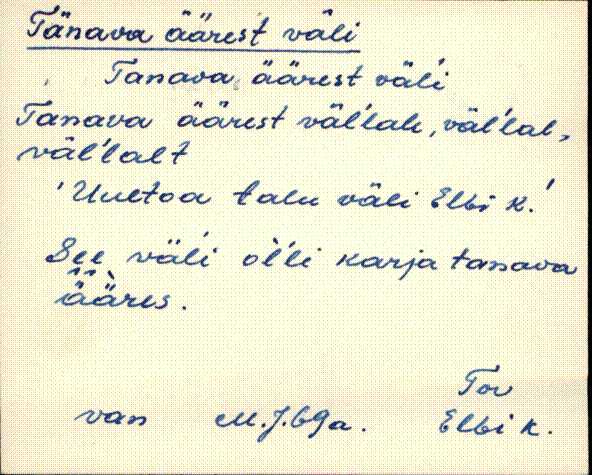 Tänava äärest väli
Tanava äärest väl'i
Tanava äärest väl'lah, väl'lal,
väl'lalt
'Uuetoa talu väli Elbi k.'
See väl'i ol'li karja tanava
ääres.
Tor
van M.J.69a. Elbi k.